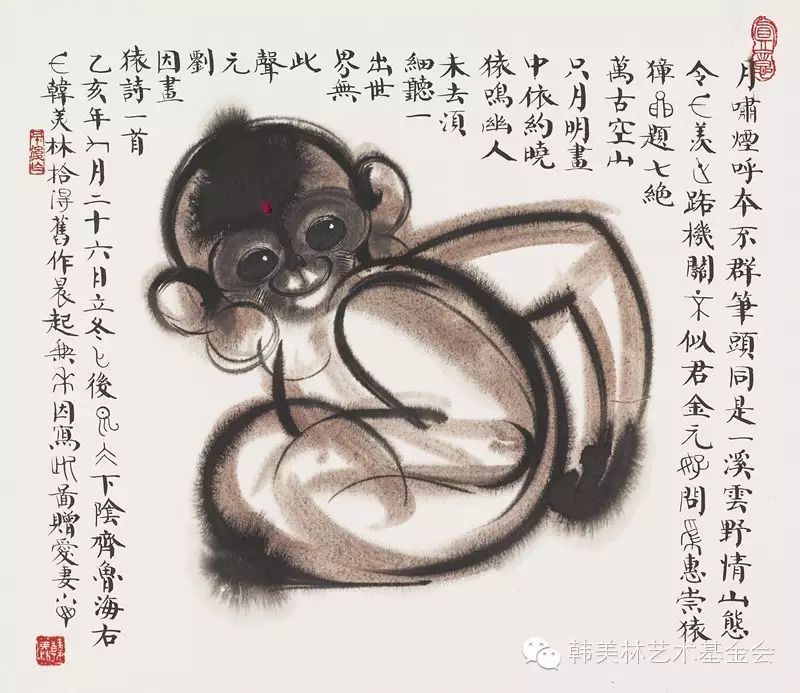 月嘯煙呼本不群筆頭同是一溪雲野情山態
令羨機關似君金元問惠崇猿
獐題七絶
萬古空山
只月明畫
中依約曉
猿鳴幽人
未去須
細聽一
出世
界無
此
聲
元
劉
因畫
猿詩一首
乙亥年月二十六日立冬後下陰齊魯海右
韓美林拾得舊作晨起無因寫圖贈愛妻
韩美林艺术基金会